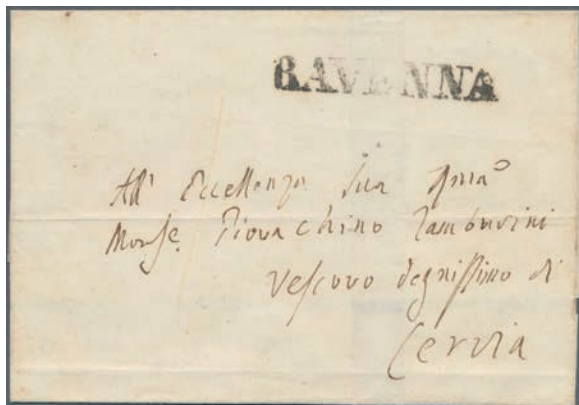 RAVENNA
All' Eccellenza Sua Rma
Monse. Giovachino Tamburini
Vescovo degnissimo di
Cervia